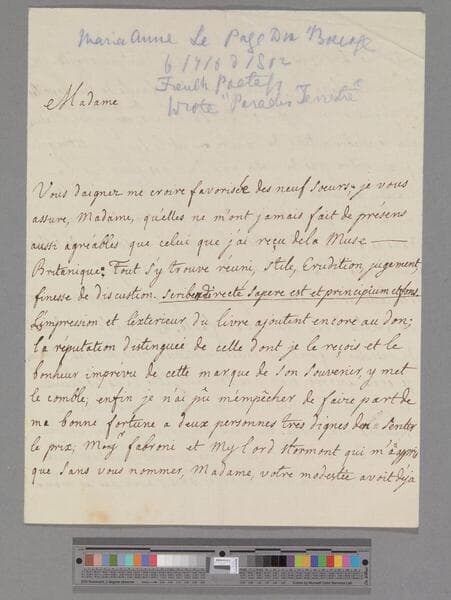 Marie Anne Le Page Du Bocage
b 1710 d 1802
French Poetess
Wrote "Paradis Terrestre"
Madame
Vous daignez me croire favorisée des neuf soeurs, je vous
assure, Madame, qu'elles ne m'ont jamais fait de présens
aussi agréables que celui que j'ai reçu de la Muse —
Britanique: Tout s'y trouve réuni, stile, Erudition, jugement,
finesse de discution. scribendi recté sapere est et principium et fons.
L'impression et l'exterieur du livre ajoutent encore au don;
la réputation distinguée de celle dont je le reçois et le
bonheur imprévu de cette marque de son souvenir, y met
le comble; enfin je n'ai pû m'empêcher de faire part de
ma bonne fortune a deux personnes tres dignes d'en sentir
le prix; Monsr fabroni et My lord stormont qui m'a appris
que sans vous nommer, Madame, votre modestie avoit déja